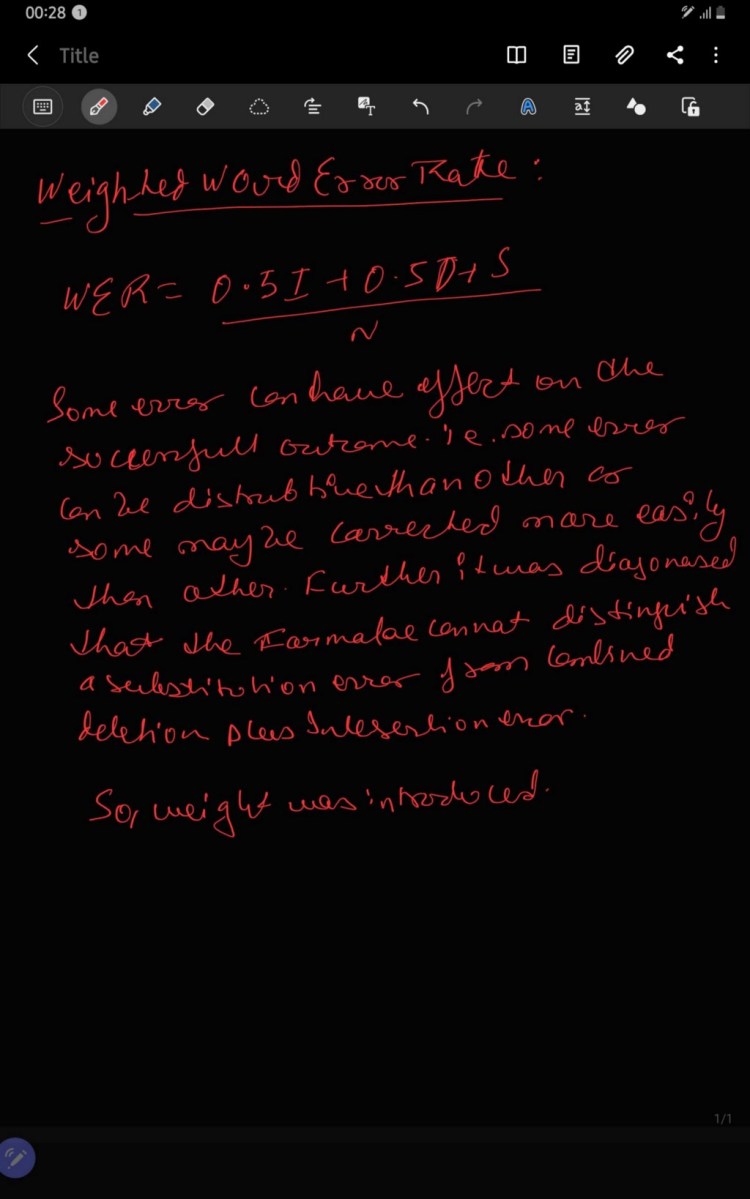 00:28 1
Title
Weighted Word Error Rate :
WER = 0.5I + 0.5D + S
N
Some error can have effect on the
successfull outcome. i.e. some error
can be distrubtive than other or
some may be corrected more easily
than other. Further it was diagonased
that the Formalae cannot distinguish
a substitution error from combined
deletion plus Intesertion error.
So, weight was introduced.
1/1